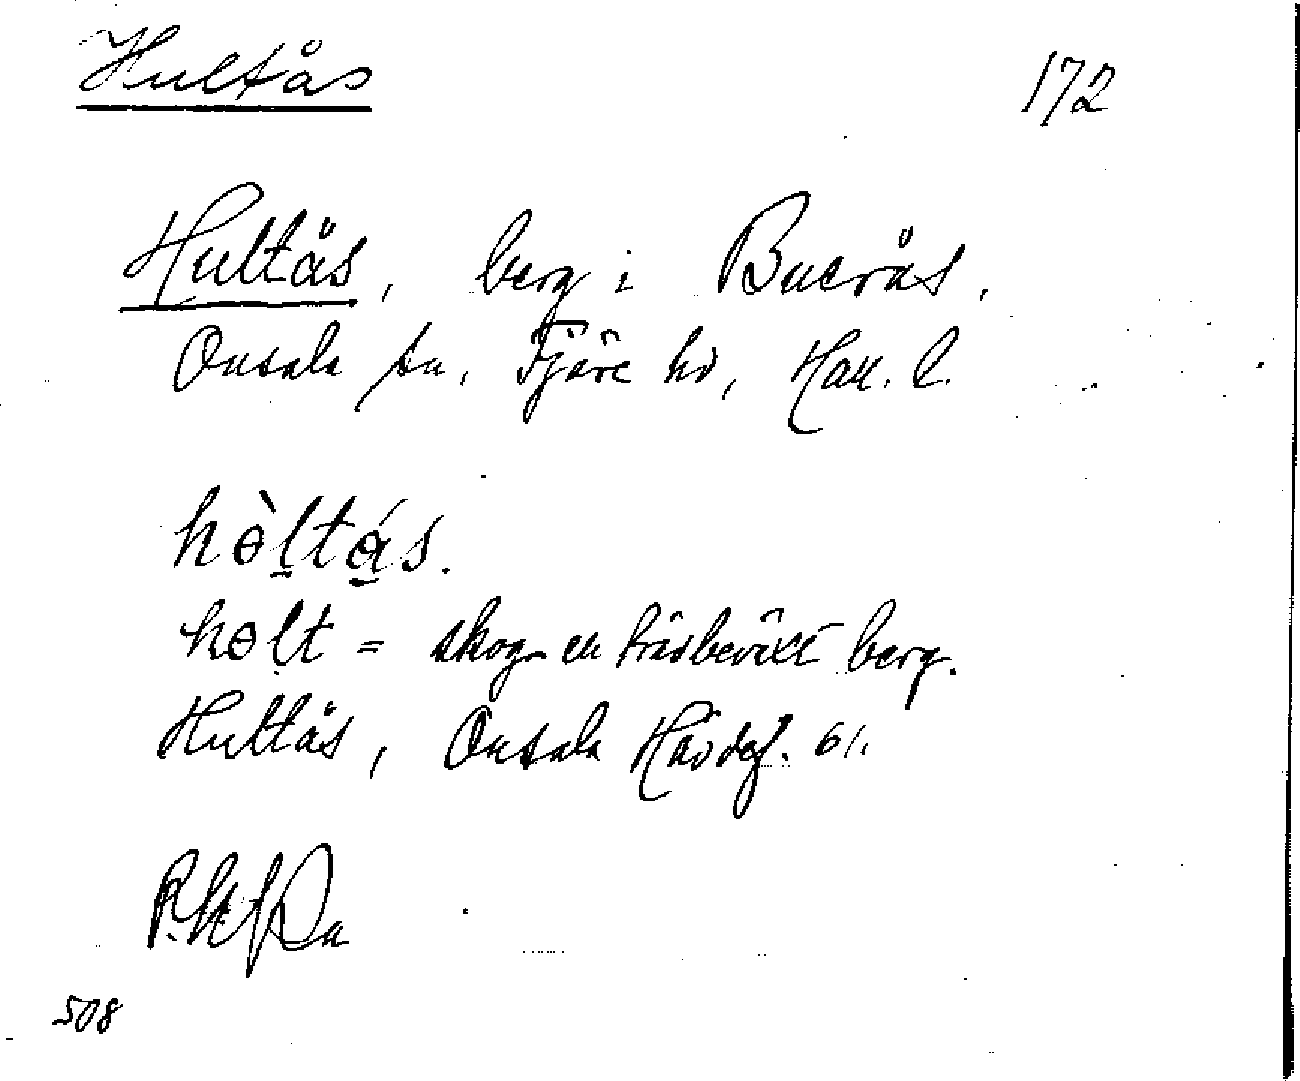 Hultås
172
Hultås, berg i Buerås,
Onsala sn, Fjäre hd, Hall. l.
hèltás.
holt = skog en trädbeväxt berg.
Hultås, Onsala Hävdef. 61.
508